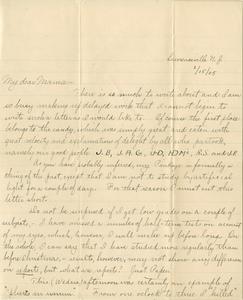 Lawrenceville N.J.
1/15/05
My dear Mamma -
There is so much to write about and I am
so busy making up delayed work that I cannot begin to
write such a letter as I would like to. Of course the first place
belongs to the candy, which was simply great and eaten with
great alacrity and exclamations of delight by all who partook,
namely my good public
As you have probably inferred, my is formally a
thing of the past, except that I am not to study by artificial
light for a couple of days. For that reason I must cut this
letter short.
Do not be surprised if I get low grades on a couple of
subjects, - I have missed a number of half-term tests on account
of my eyes, which, however, I will make up before long. On
the whole, I can say that I have studied more regularly than
before Christmas, - results, however, may not show any difference
on reports, but what are reports? Just Paper.
This afternoon was certainly an example of
" " From one o'clock to three I